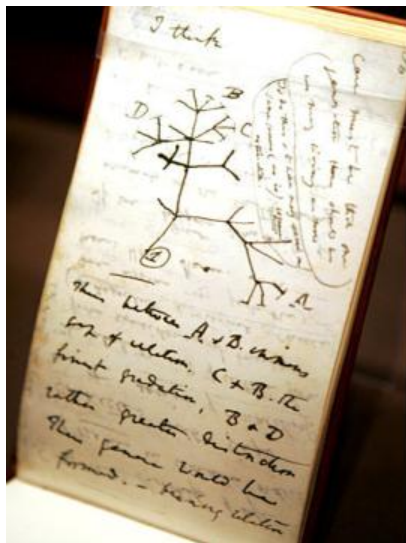 I think
B
D
C
1
A
Case must be that one
generation then should be
as many living as now
To do this & to have many species in
same genus (as is) requires
extinction
Thus between A & B. immens
gap of relation. C & B. the
finest gradation, B & D
rather greater distinction
Thus genera would be
formed. – bearing relation